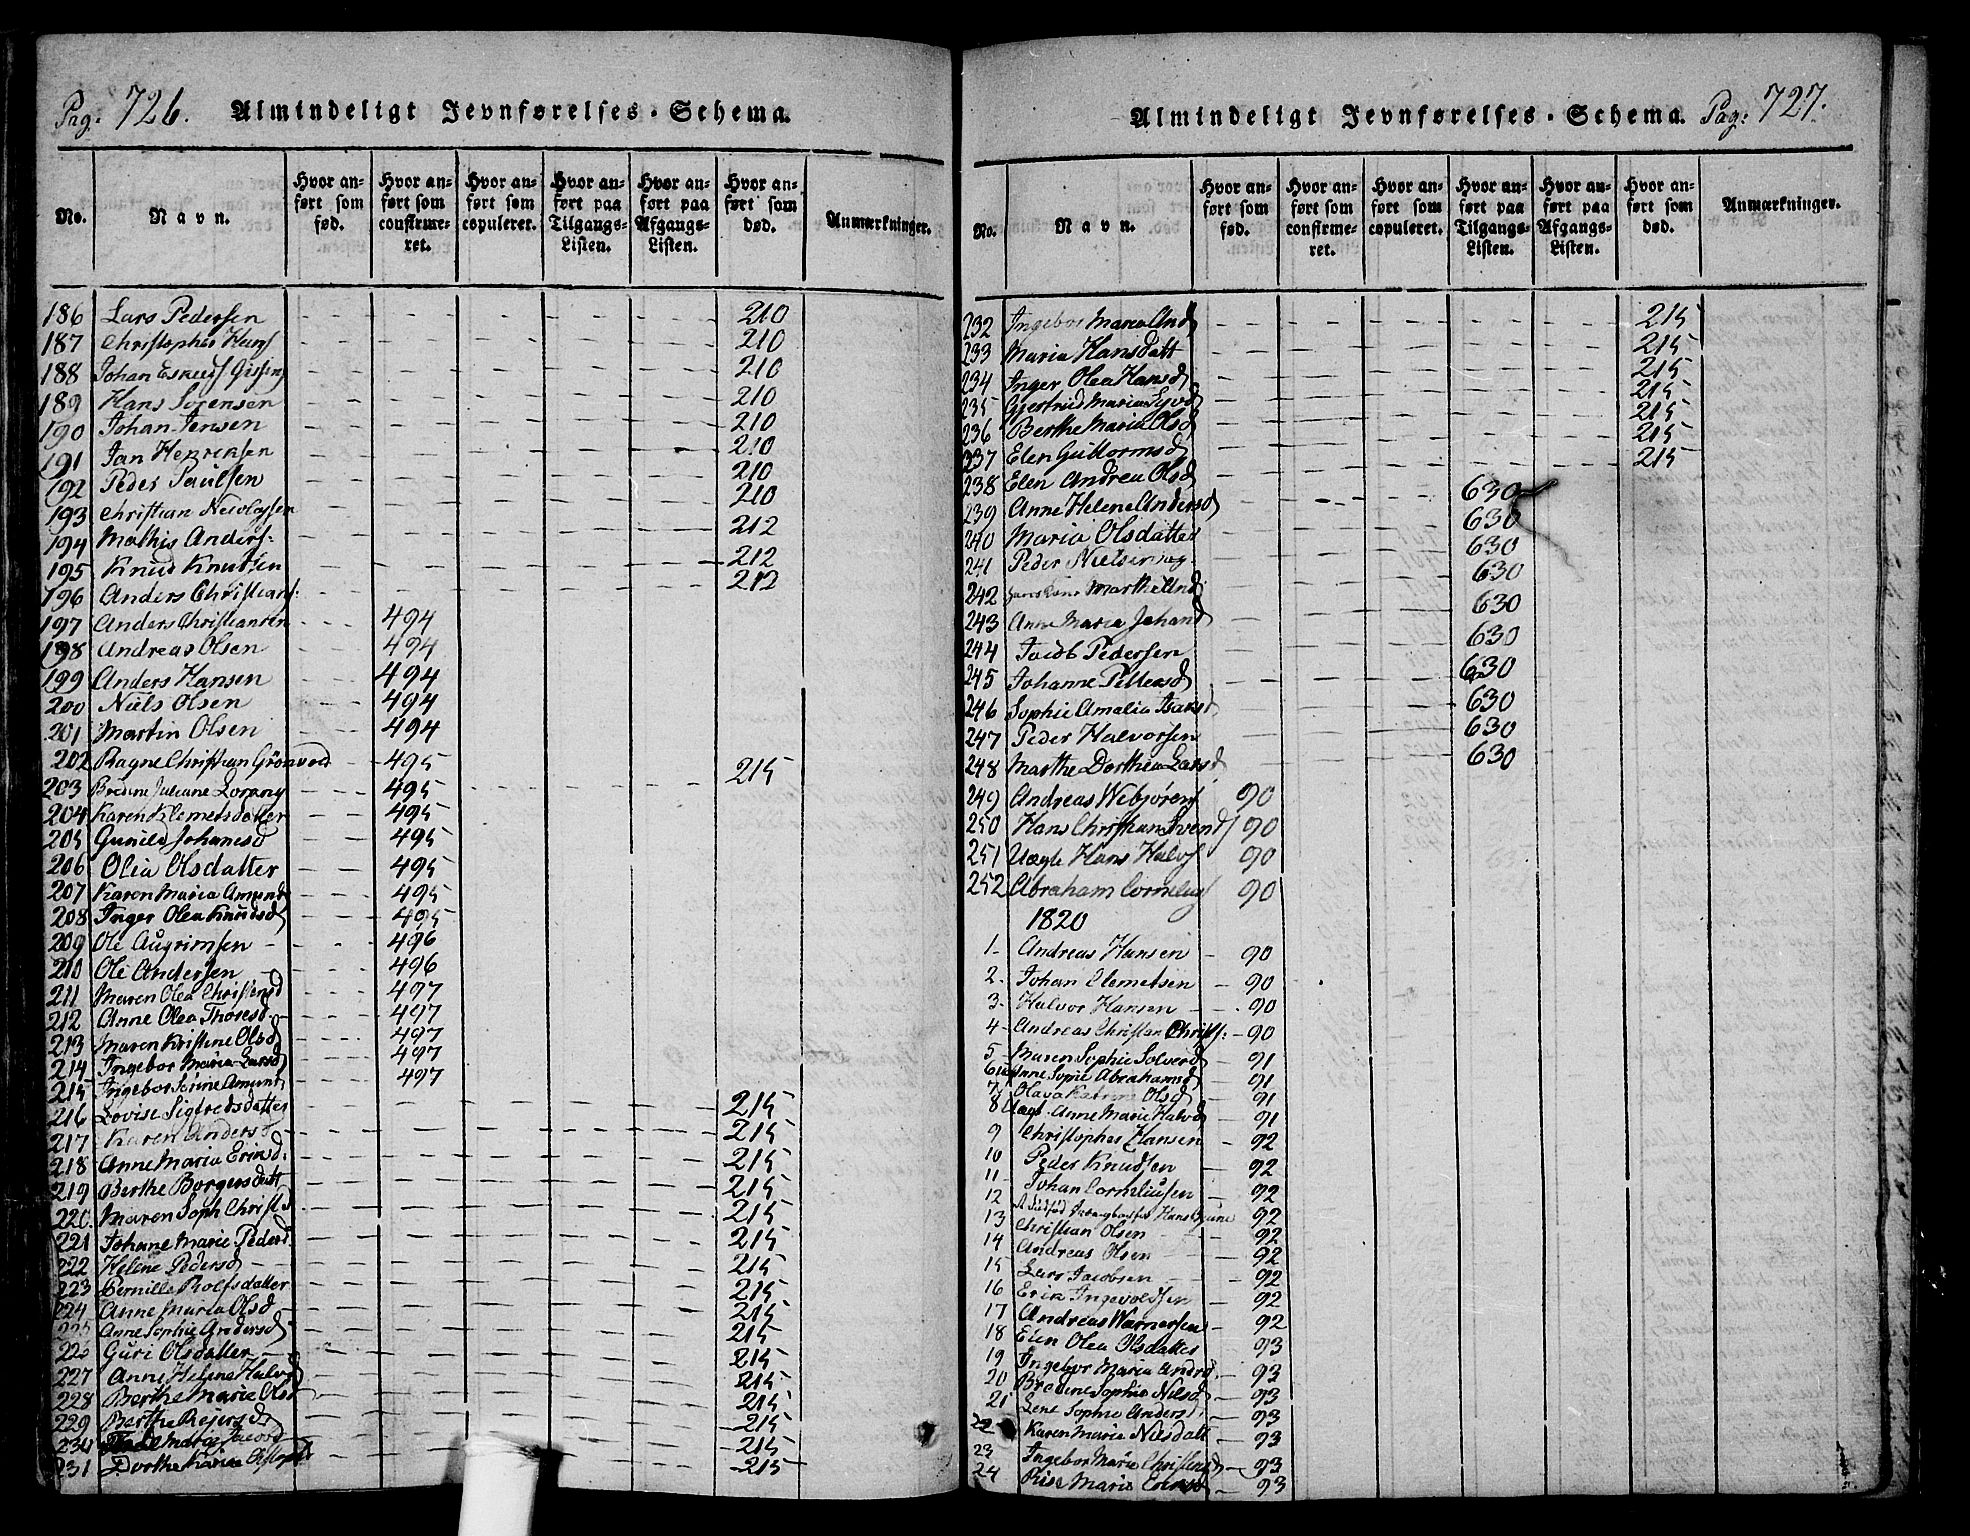 Pag. 726. Almindeligt Jevnførelses-Schema.
No. Navn. Hvor anført som fød. Hvor anført som confirmeret. Hvor anført som copuleret. Hvor anført paa Tilgangs-Listen. Hvor anført paa Afgangs-Listen. Hvor anført som død. Anmærkninger.
186 Lars Pedersen 210
187 Christopher Hans 210
188 Johan 210
189 Hans Sørensen 210
190 Johan Jensen 210
191 Jan Henrensen 210
192 Peder Paulsen 210
193 Christian 210
194 Mathis Anders: 212
195 Knud Knutsen 212
196 Anders Christians: 212
197 Anders Christiansen 494
198 Andreas Olsen 494
199 Anders Hansen 494
200 Niels Olsen 494
201 Martin Olsen 494
202 Ragne Christian Grönvold 495 215
203 Juliane 495
204 Karen Klemetsdatter 495
205 Gunild Johanesd 495
206 Olia Olsdatter 495
207 Karen Maria Amund 495
208 Inger Olea Knudsd 495
209 Ole 496
210 Ole Andersen 496
211 Maren Olea Christensd 497
212 Anne Olea Thoresd 497
213 Maren Kristine Olsd 497
214 Ingebor Maria Larsd 497
215 Ingebor Amund 497
216 Lovise Sigfredsdatter 215
217 Karen Andersd 215
218 Anne Maria 215
219 Berthe Borgersdatt 215
220. Maren Soph Christ 215
221 Johane Marie Pedersd 215
222 Helene Pedersd 215
223 Pernille Rolfsdatter 215
224 Anne Maria Olsd 215
225 Anne Sophie Andersd 215
226 Guri Olsdatter 215
227 Anne Helene Halvd 215
228 Berthe Marie Olsd 215
229 Berthe Rejersd 215
230 215
231 Dorthe Karia 215
Almindeligt Jevnførelses-Schema. Pag: 727.
No. Navn. Hvor anført som fød. Hvor anført som confirmeret. Hvor anført som copuleret. Hvor anført paa Tilgangs-Listen. Hvor anført paa Afgangs-Listen. Hvor anført som død. Anmærkninger.
232 Ingebor Maria And 215
233 Maria Hansdatt 215
234 Inger Olea Hansd 215
235 Gjertrud Maria 215
236 Berthe Maria Olsd 215
237 Elen Guttormsd 215
238 Elen Andrea Olsd 215
239 Anne Helene Andersd 630
240 Maria Olsdatter 630
241 Peder Nielsen 630
242 Marthe And 630
243 Anne Maria Johand 630
244 Jacob Pedersen 630
245 Johanne Pettersd 630
246 Sophie Amalia Isaksd 630
247 Peder Halvorsen 630
248 Marthe Dorthea Larsd 630
249 Andreas Webjørens 90
250 Hans Christian Svends 90
251 Uægte Hans Halvs 90
252 Abraham Cornelius 90
1820
1- Andreas Hansen 90
2. Johan Clemetsen 90
3- Halvor Hansen 90
4- Andreas Christian Christ: 90
5- Maren Sophie Solverd 91
6 Anne Sopie Abrahamsd 91
7 Olava Katrine Olsd 91
8 Uægt. Anne Marie Halvd 91
9 Christopher Hansen 92
10 Peder Knudsen 92
11- Johan Corneliusen 92
12 92
13 Christian Olsen 92
14 Andreas Olsen 92
15 Lars Jacobsen 92
16 Erik Ingevoldsen 92
17 Andreas Warnersen 92
18 Elen Olea Olsdatter 93
19 Ingebor Maria Andrd 93
20 Bredine Sophie Nilsd 93
21 Lene Sophie Andersd 93
22 Karen Maria Nilsdatt 93
23 Ingebor Marie Christensd 93
24 Marie 93